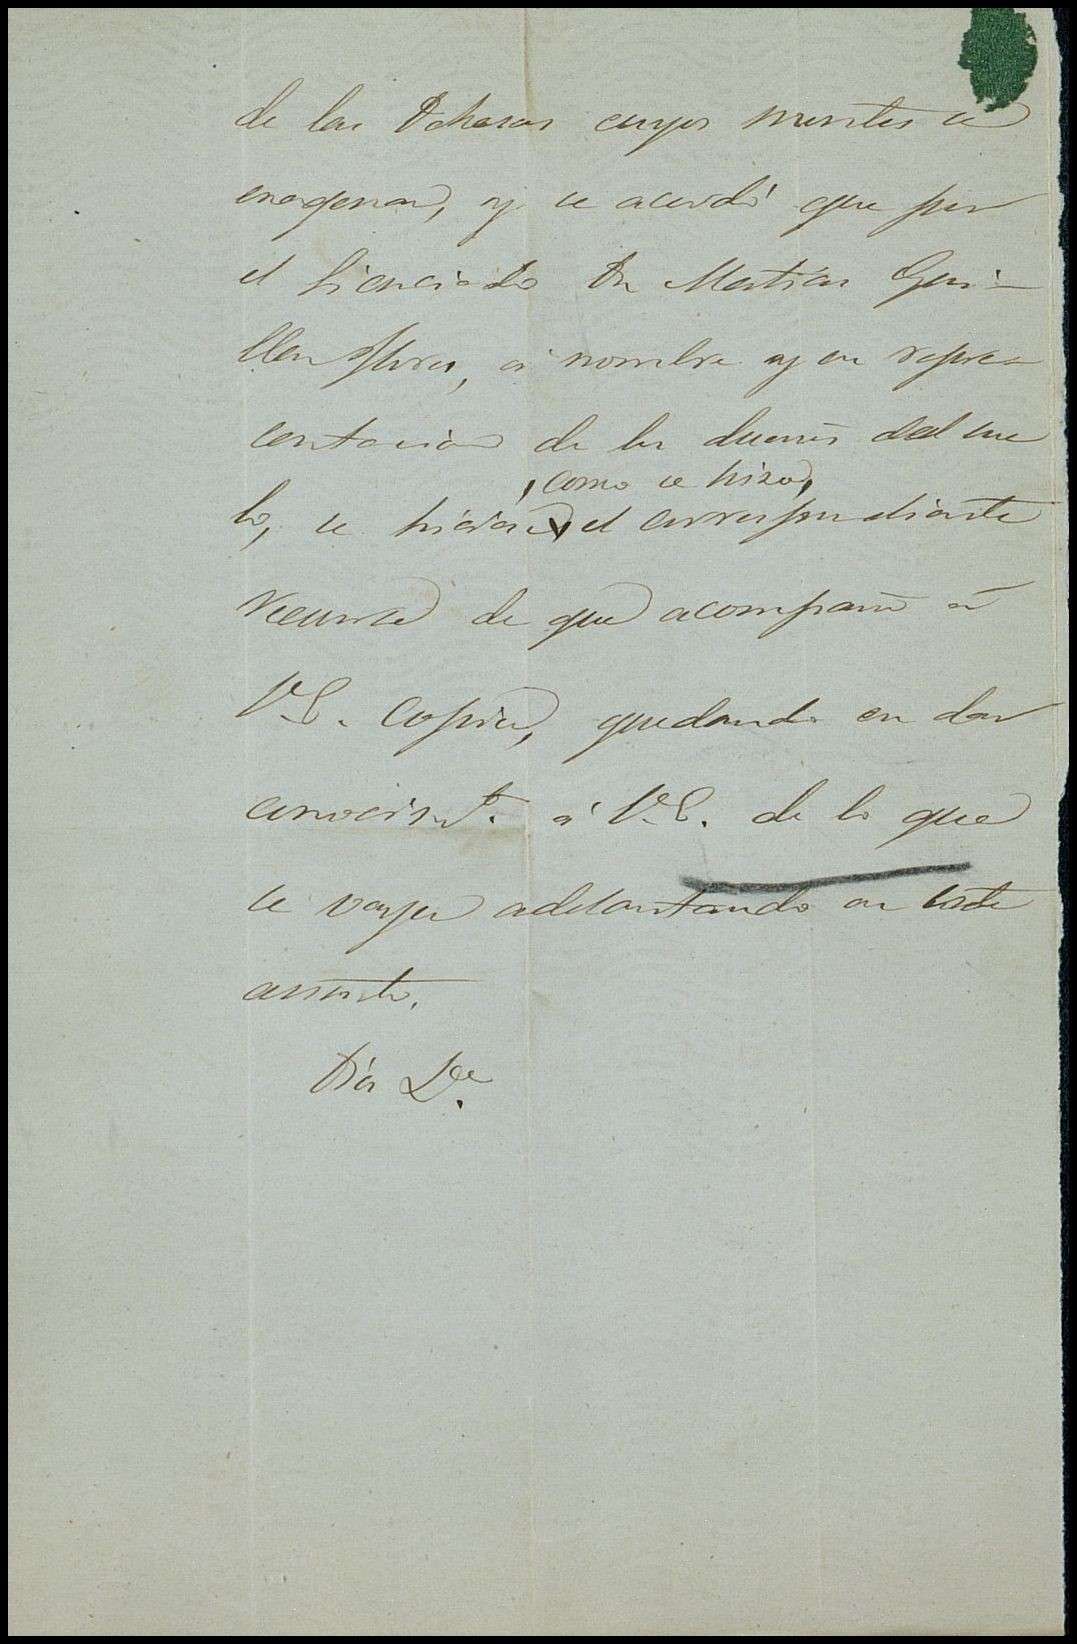 de las Dehesas cuyos montes se
enagenan, y se acordó que por
el Licenciado Dn Matias Gui-
llen Flores, á nombre y en repre-
sentacion de los dueños del sue
lo, se hiciera el correspondiente
, como se hizo,
recurso de que acompaño á
V.E. copia, quedando en dar
conocimto. á V.E. de lo que
se vaya adelantando en este
asunto.
Dios &e.